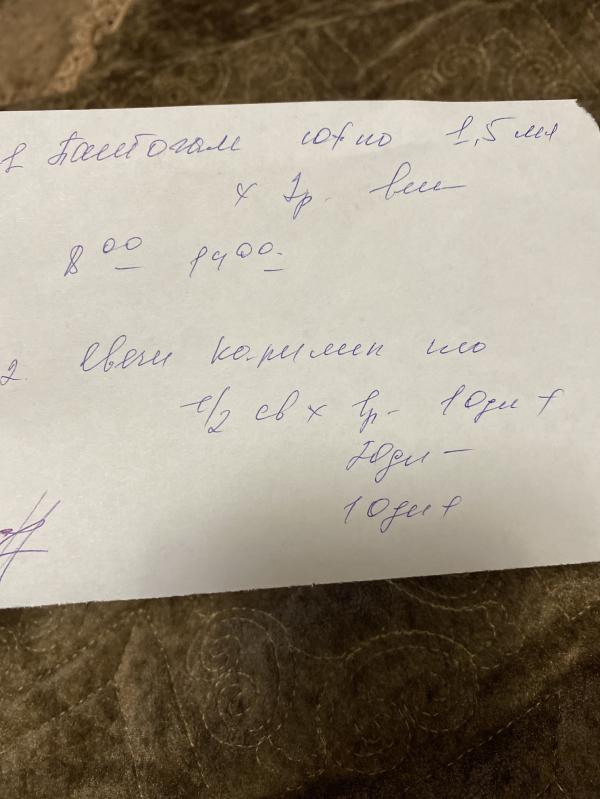 1 Пантогам 10% по 1,5 мл
х 2р. вн
8 00 14 00
2. Свечи Кормилек по
1/2 св х 1р - 10дн +
20дн -
10дн +